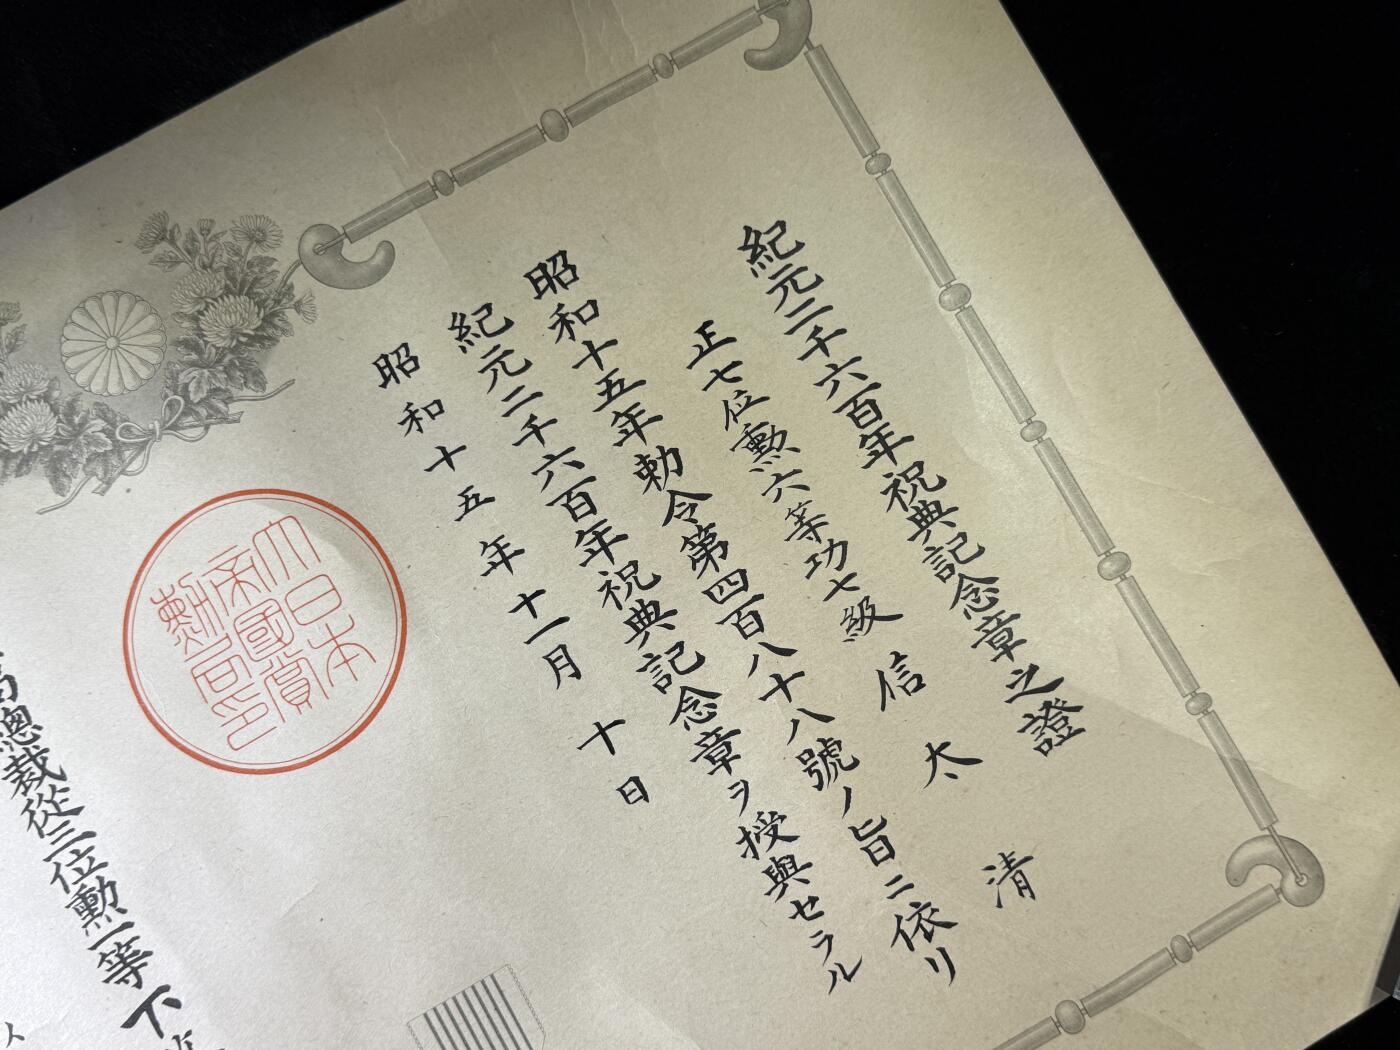 紀元二千六百年祝典記念章之證
正七位勲六等功七級 信太 清
昭和十五年勅令第四百八十八號ノ旨ニ依リ
紀元二千六百年祝典記念章ヲ授與セラル
昭和十五年十一月十日
大日本
帝國賞
勲局印
總裁從三位勲一等下